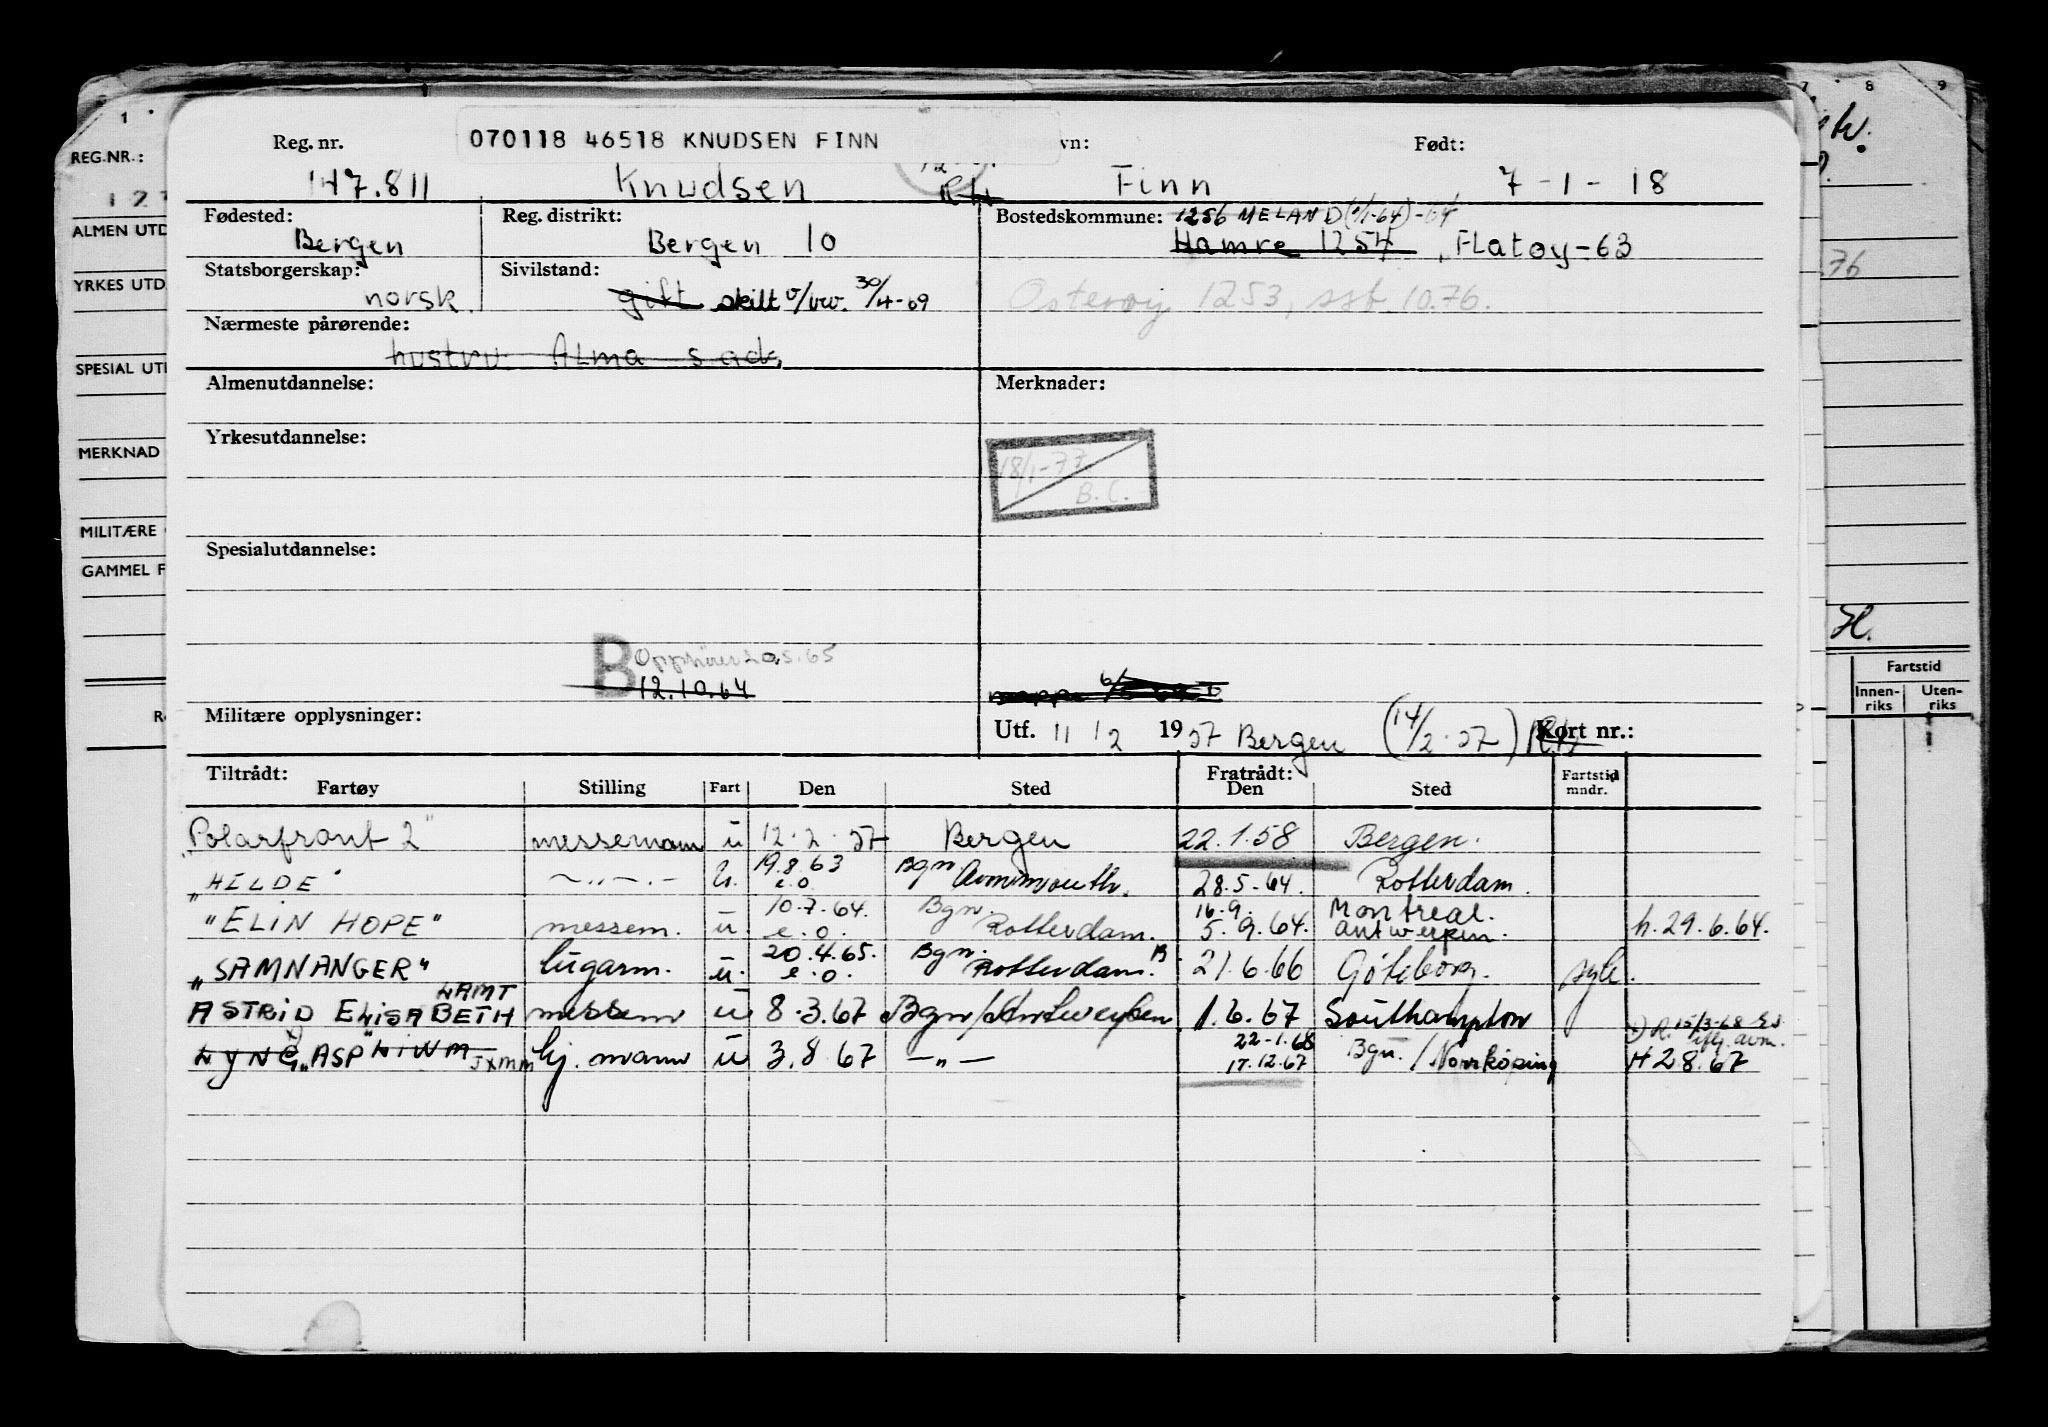 1
7 8 9
REG.NR.:
ALMEN UTD
YRKES UTD
SPESIAL UT
MERKNAD
MILITÆRE
GAMMEL F
76
H.
Fartstid
Innen-riks Uten-riks
070118 46518 KNUDSEN FINN
Reg. nr. vn: Født:
147.811 Knudsen Finn 7-1-18
Fødested: Reg. distrikt: Bostedskommune: 1256 MELAND (1/1-64)-64
Bergen Bergen 10 Hamre 1254, Flatøy-63
Statsborgerskap: Sivilstand:
norsk. gift skilt v/bev. 30/4-69 Osterøy 1253, ssb. 10.76.
Nærmeste pårørende:
hustru Alma s.adr.
Almenutdannelse: Merknader:
Yrkesutdannelse:
18/1-77
B.C.
Spesialutdannelse:
B Opphører 20.5.65
12.10.64
Militære opplysninger: Utf. 11/2 1957 Bergen (14/2-57) Kort nr.:
Tiltrådt: Fratrådt: Fartstid
Fartøy Stilling Fart Den Sted Den Sted mndr.
"Polarfront 2" messemann u 12.2.57 Bergen 22.1.58 Bergen.
"HILDE" —"— U. 19.8.63 e.o. Bgn Avonmouth. 28.5-64. Rotterdam.
"ELIN HOPE" messem. u 10.7.64. e.o. Bgn. Rotterdam. 16.9. 5.9.64. Montreal. Antwerpen. h.29.6.64.
"SAMNANGER" lugarm. u. 20.4.65. e.o. Bgn. Rotterdam. B 21.6.66 Göteborg. syk.
ASTRID ELISABETH messem u 8.3.67 Bgn/Antwerpen 1.6.67 Southampton
LYNG "ASP" hj. mann u 3.8.67 —"— 22-1.68 17.12.67 Bgn./Norrköping H 2.8.67